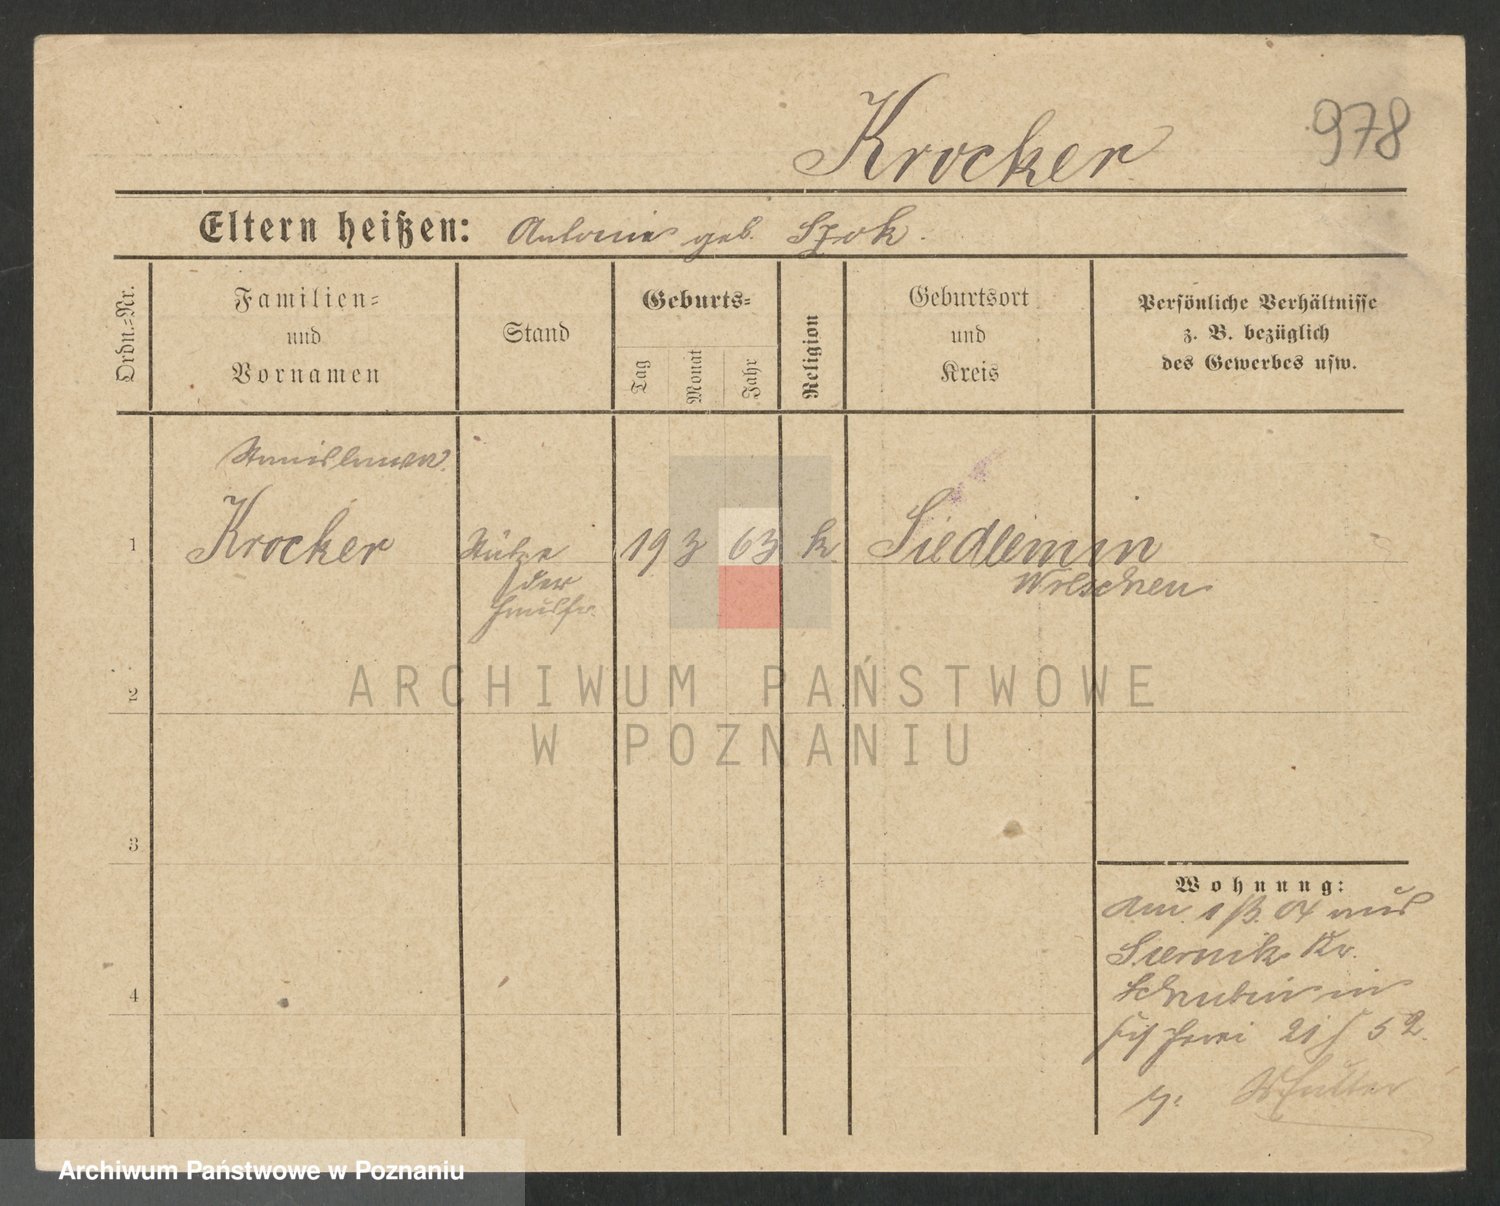 Krocker
978
Eltern heißen: Antonie geb. Szok.
Ordn.=Nr.
Familien=
und
Vornamen
Stand
Geburts=
Tag
Monat
Jahr
Religion
Geburtsort
und
Kreis
Persönliche Verhältnisse
z. B. bezüglich
des Gewerbes usw.
Stanislawa
1 Krocker Stütze 19 3 63 k. Siedlemin
der Wilschen
Hausfr.
2
3
4
Wohnung:
Am 1/3. 04 aus
Siernik Kr.
Schubin in
Fischerei 21/
ARCHIWUM PAŃSTWOWE
W POZNANIU
Archiwum Państwowe w Poznaniu